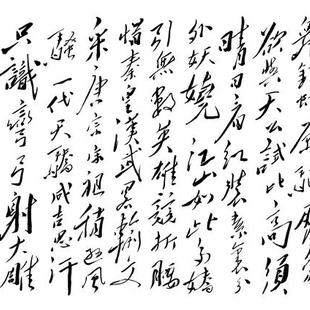 銀蛇原馳
欲與天公試比高須
晴日看紅裝素裹分
外妖嬈 江山如此多嬌
引無數英雄競折腰
惜秦皇漢武略輸文
采唐宗宋祖稍遜風
騷一代天驕成吉思汗
只識彎弓射大雕